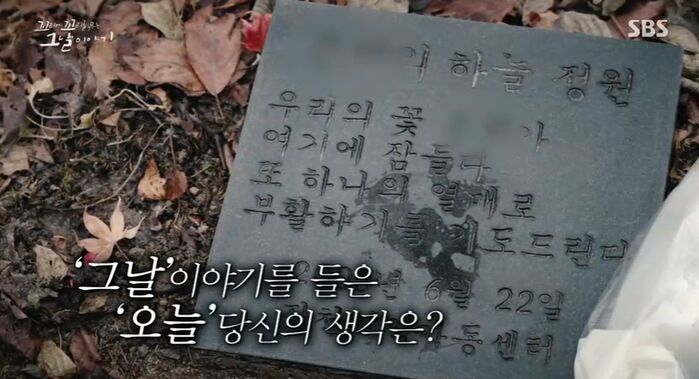 꼬리에 꼬리를 무는
그날 이야기
SBS
기 하늘 정원
우리의 꽃 가
여기에 잠들다
또 하나의 열매로
부활하기를 기도드린다
6월 22일
동센터
‘그날’이야기를 들은
‘오늘’당신의 생각은?